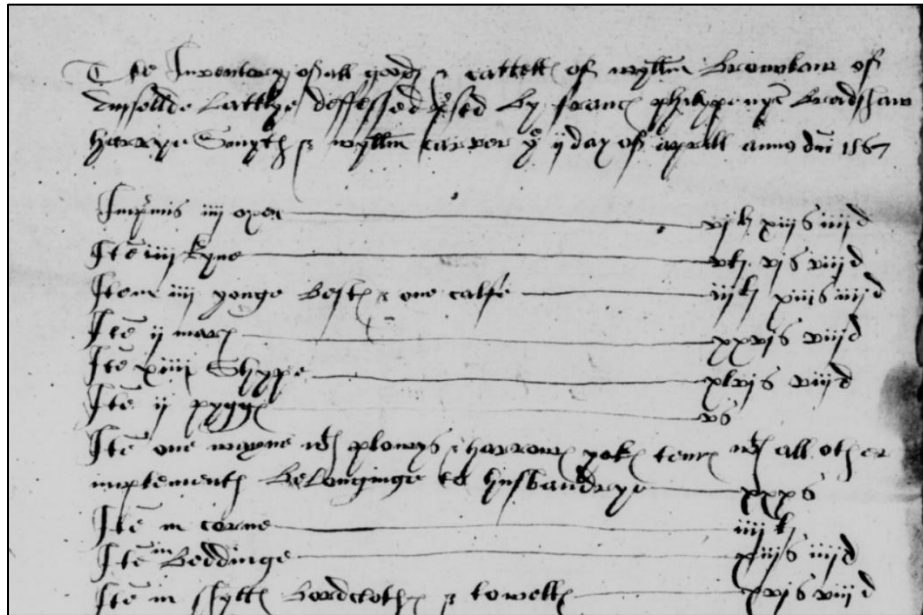 The Inventory of all goods & cattells of wyllm Bromham of
lattlye deffessed by franc phelyppe nyc Bradshaw
harrye Smyth & wyllm carver ye ij day of apryll anno dni 1567
Inprmis iiij oxen vj li xiijs iiijd
Itē iiij kyne v li vjs viijd
Item iiij yonge bests & one calfe iij li xiijs iiijd
Itē ij mares xxvjs viijd
Itē xiiij Shype xlvjs viijd
Itē ij pygges vs
Itē one wayne wth plowys & harrows yoks tems wth all other
implements belonginge to husbandrye xxxs
Itē in corne iiij li
Itē in beddinge xiijs iiijd
Itē in bordcloths & towells xvjs viijd